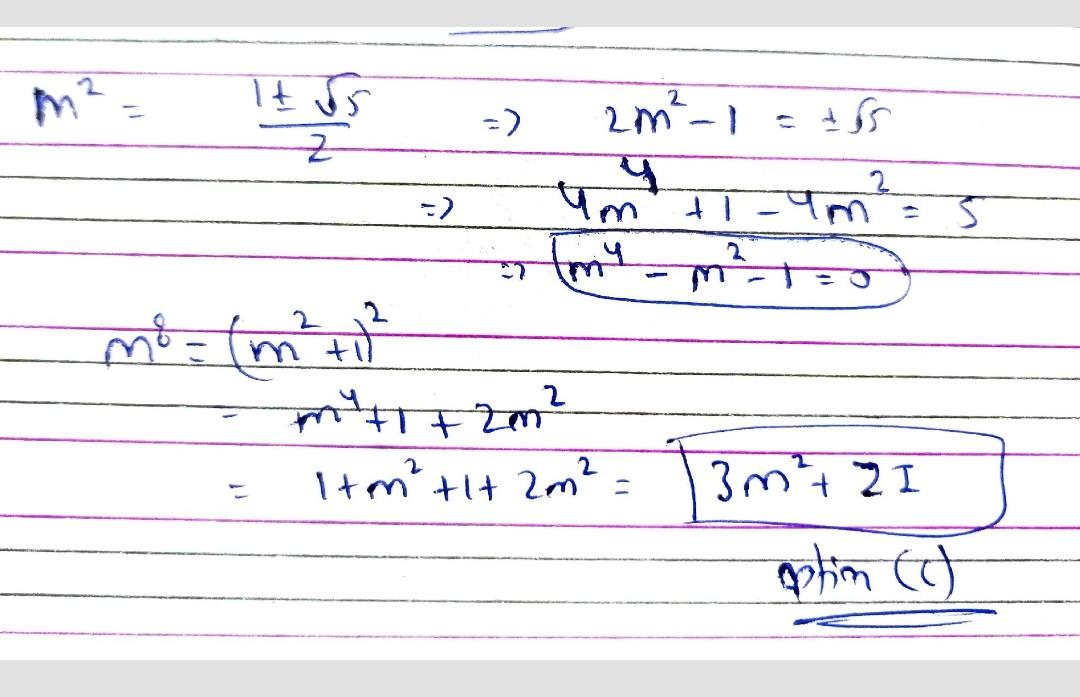 m² = (1 ± √5)/2 => 2m² - 1 = ± √5
=> 4m⁴ + 1 - 4m² = 5
=> m⁴ - m² - 1 = 0
m⁸ = (m² + 1)²
= m⁴ + 1 + 2m²
= 1 + m² + 1 + 2m² = 3m² + 2I
option (C)